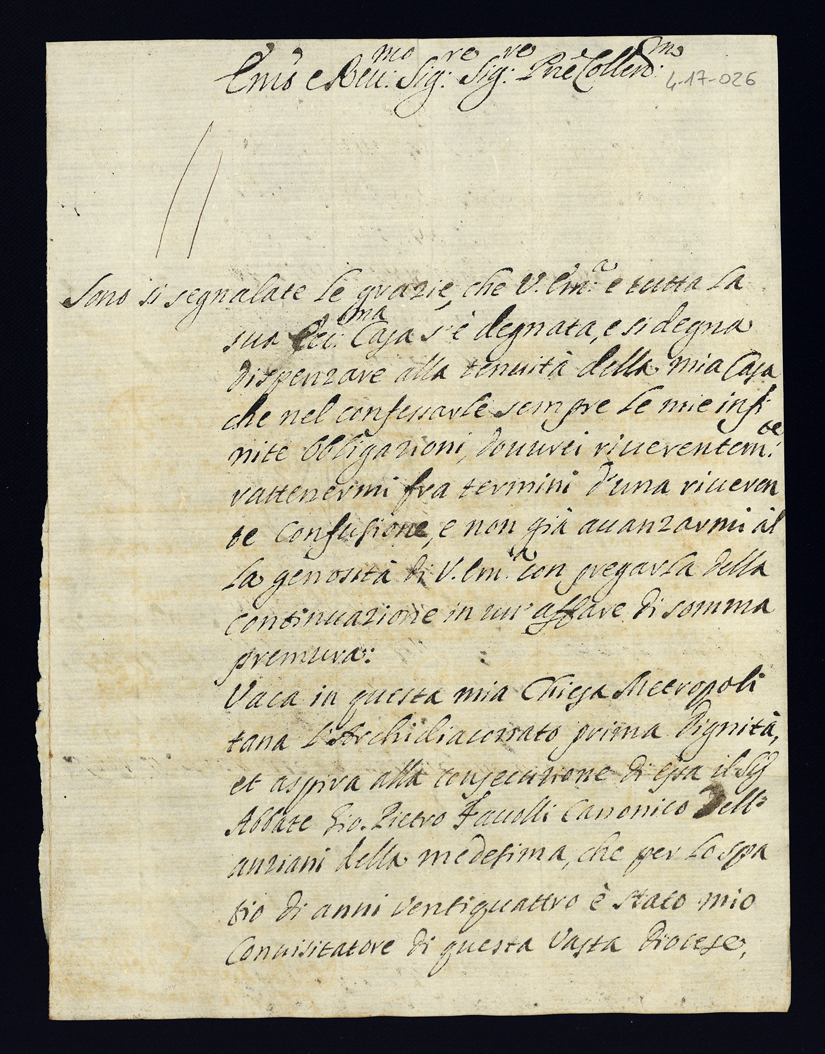 Em̃o e Reu:mo Sig:re Sig:re Prñe Colled:mo
4-17-026
Sono si segnalate le grazie, che V. Em:a e tutta la
sua Ecc:ma Casa s'è degnata, e si degna
dispenzare alla tenuità della mia Casa
che nel confessarle sempre le mie infi
nite obbligazioni, dovurei riuerentem:te
rattenermi fra termini d'una riueren
te confusione, e non già auanzarmi al
la genosità di V. Em:a con pregarla della
continuazione in un' affare di somma
premura:
Vaca in questa mia Chiesa Metropoli
tana l'Archidiaconato prima dignità,
et aspira alla consecuzione di essa il Sig
Abbate Gio. Pietro Canonico dell'
anziani della medesima, che per lo spa
tio di anni ventiquattro è stato mio
Conuisitatore di questa Vasta Diocese,